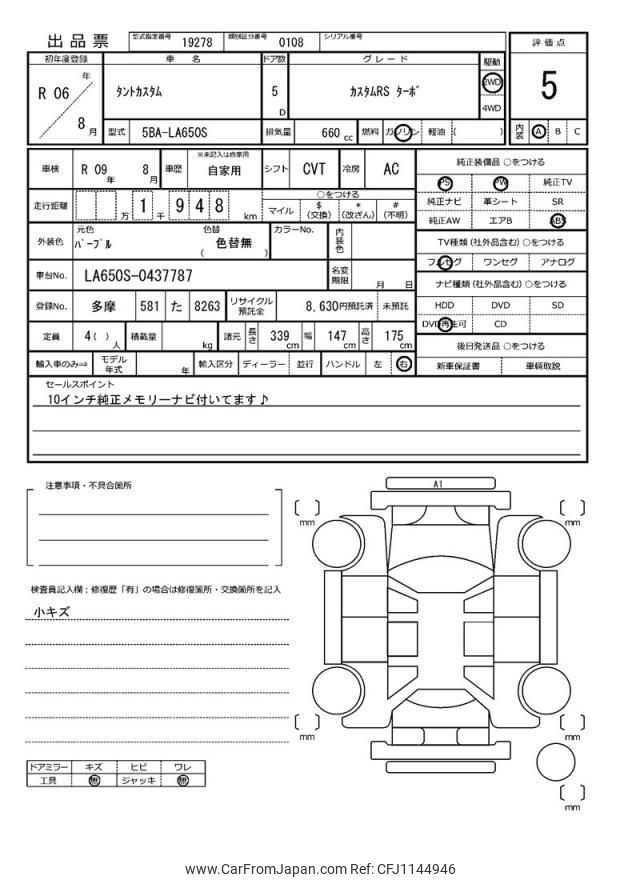 出品票 型式指定番号 19278 類別区分番号 0108 シリアル番号
評価点
5
内装 A B C
初年度登録 車名 ドア数 グレード 駆動
R 06 年 8 月 タントカスタム 5 D カスタムRS ターボ 2WD 4WD
型式 5BA-LA650S 排気量 660 cc 燃料 ガソリン 軽油 ( )
車検 R 09 年 8 月 車歴 ※未記入は自家用 自家用 シフト CVT 冷房 AC
走行距離 万 1 千 9 4 8 km ○をつける
マイル $(交換) *(改ざん) #(不明)
外装色 元色 パープル 色替 ( 色替無 ) カラーNo. 内装色
車台No. LA650S-0437787 名変期限 月 日
登録No. 多摩 581 た 8263 リサイクル預託金 8,630円預託済 未預託
定員 4 ( ) 人 積載量 kg 諸元 長さ 339 cm 幅 147 cm 高さ 175 cm
輸入車のみ⇒ モデル年式 年 輸入区分 ディーラー 並行 ハンドル 左 右
純正装備品 ○をつける
PS PW 純正TV
純正ナビ 革シート SR
純正AW エアB ABS
TV種類 (社外品含む) ○をつける
フルセグ ワンセグ アナログ
ナビ種類 (社外品含む) ○をつける
HDD DVD SD
DVD再生可 CD
後日発送品 ○をつける
新車保証書 車輌取説
セールスポイント
10インチ純正メモリーナビ付いてます♪
注意事項・不具合箇所
検査員記入欄：修復歴「有」の場合は修復箇所・交換箇所を記入
小キズ
ドアミラー キズ ヒビ ワレ
工具 無 ジャッキ 無
A1
mm
mm
mm
mm
mm
www.CarFromJapan.com Ref: CFJ1144946